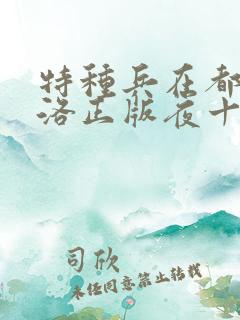 特種兵在都
洛正版夜十
司欣
未经同意禁止转载